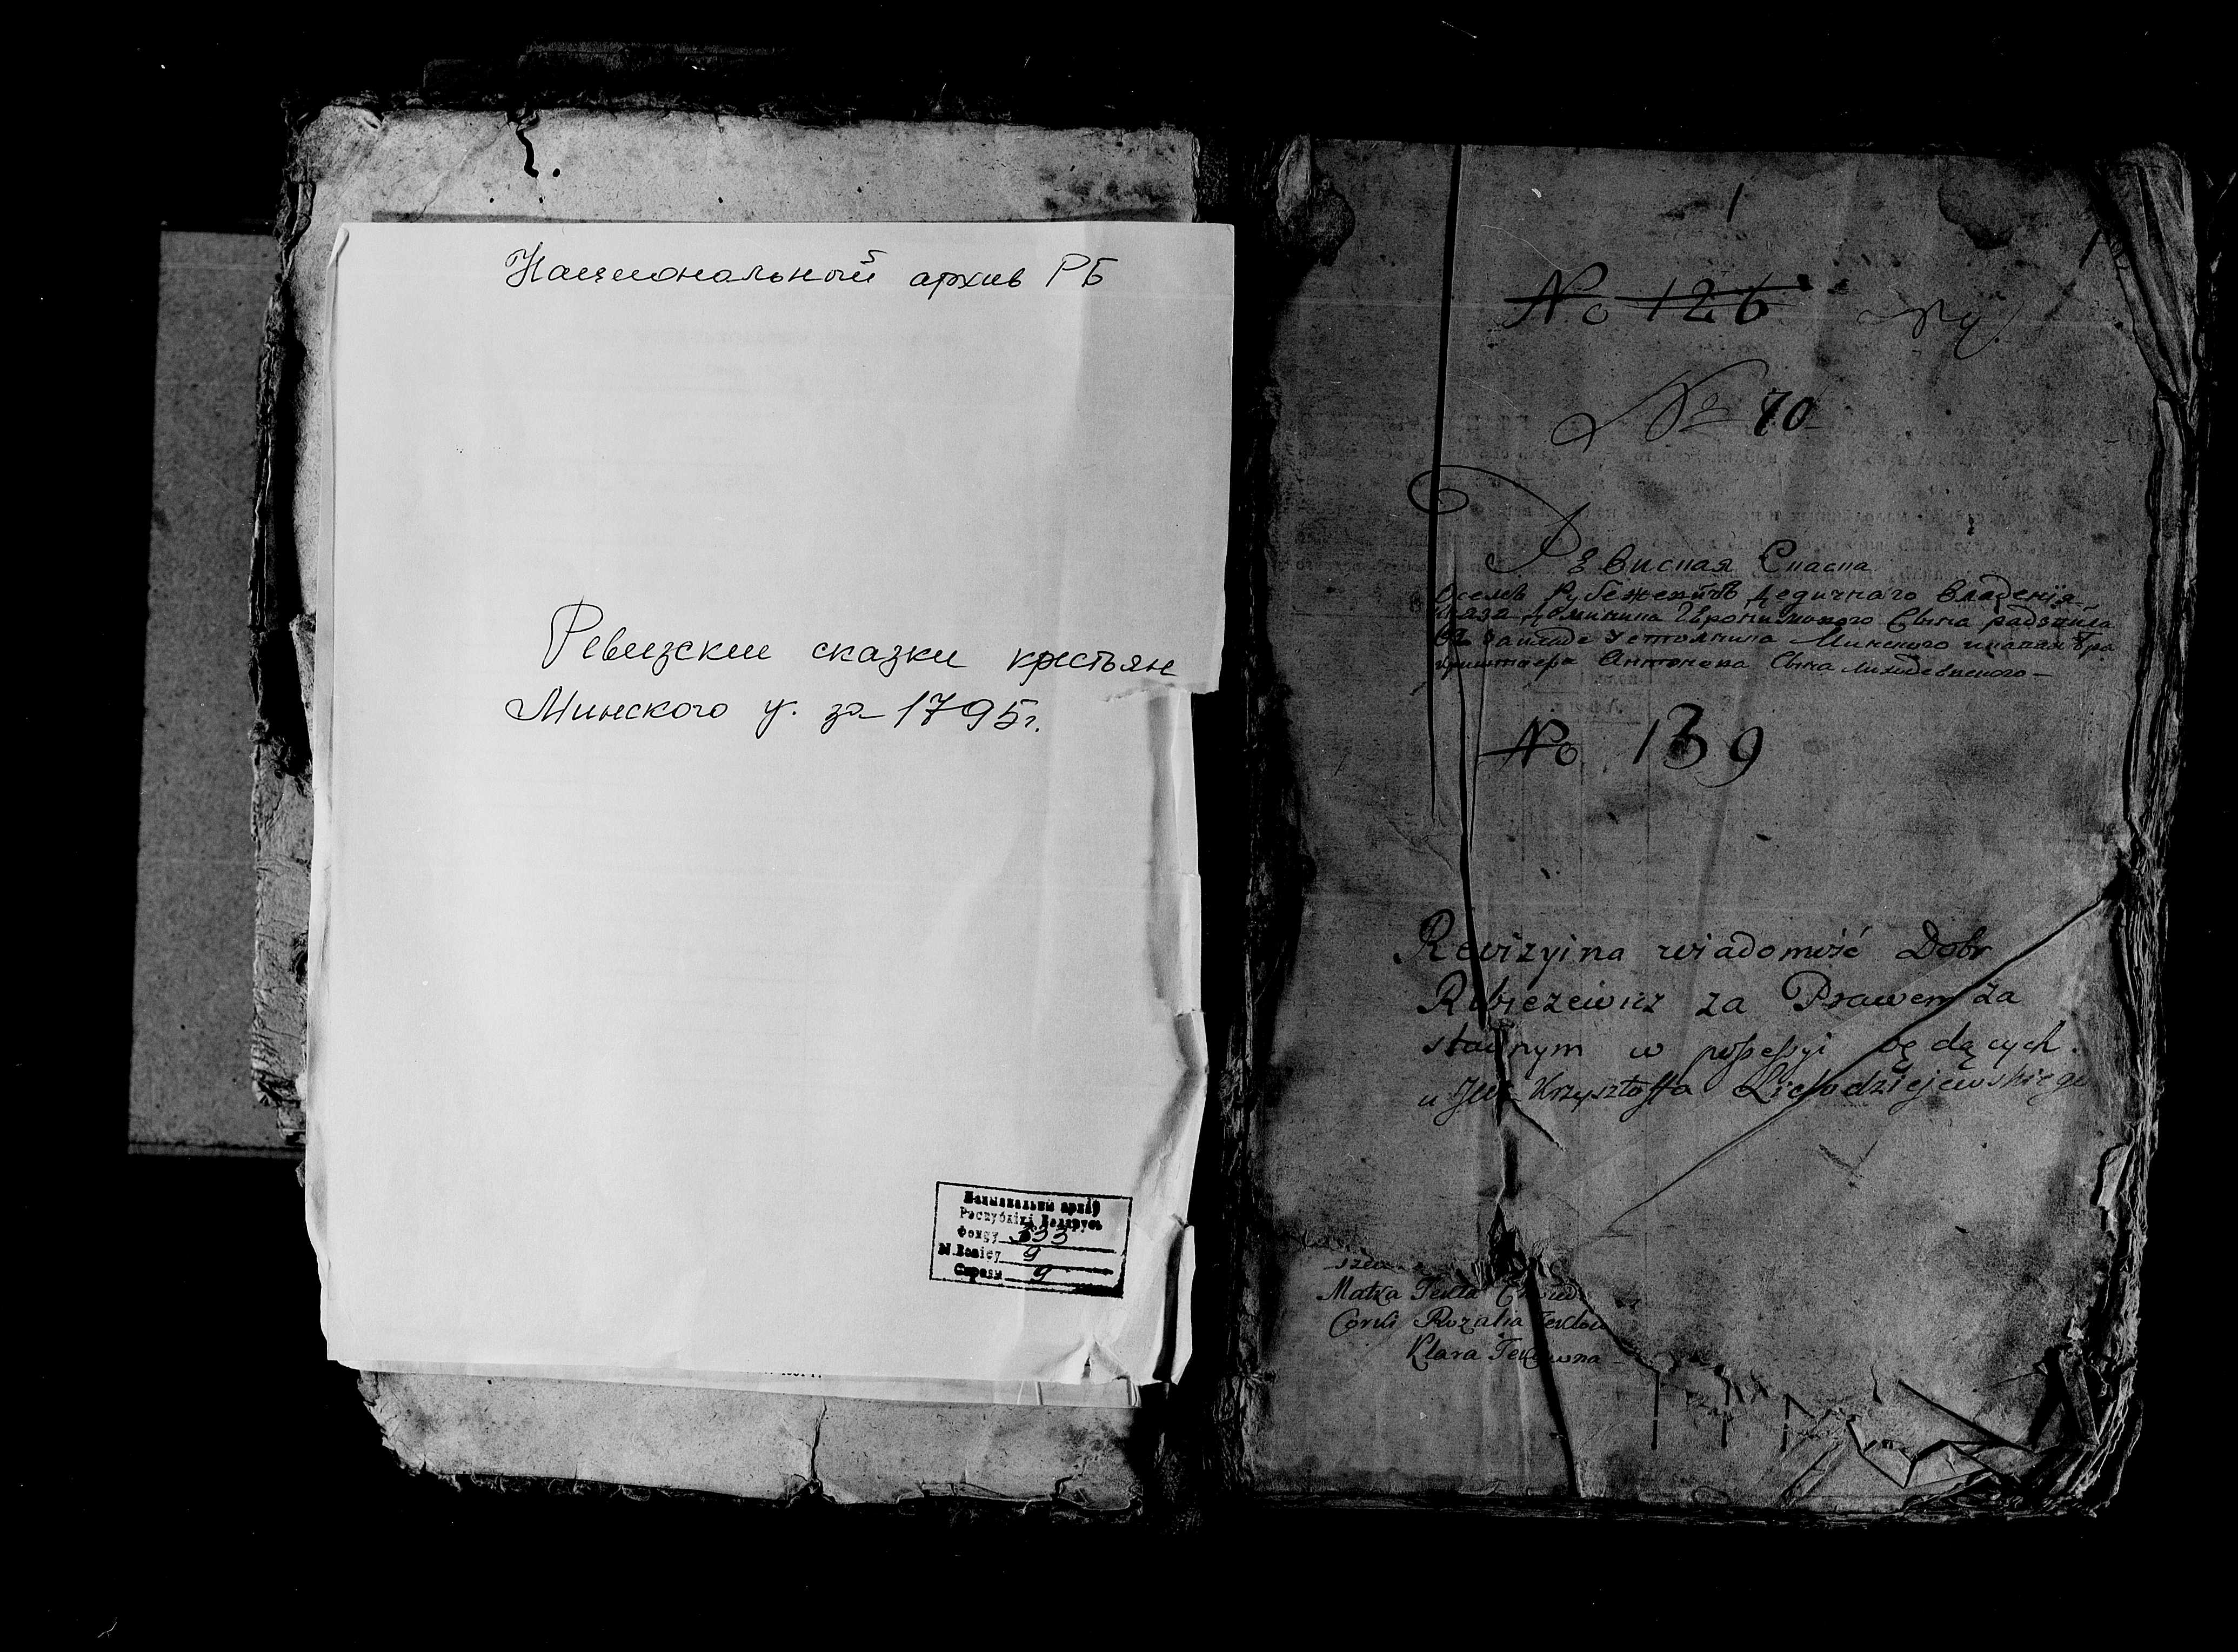 Национальный архив РБ
Ревизские сказки крестьян
Минского у. за 1795г.
Нацыянальны архіў
Рэспублікі Беларусь
Фонду 333
№ Вопісу 9
Справы 9
1
No 126
№ 70
Ревисная Сказка
Рубежевичъ дедичного владения
Князя Доминика Геронимового Сына радзивила
Минского
Антонова Сына
No 139
Rewizyina wiadomość Dobr
Rubieżewicz za Prawem Za
stawnym w poſseſsyi będących
u Krzysztoffa Lichodziejewskiego
Matka Tekla
Corki Rozalia
Klara